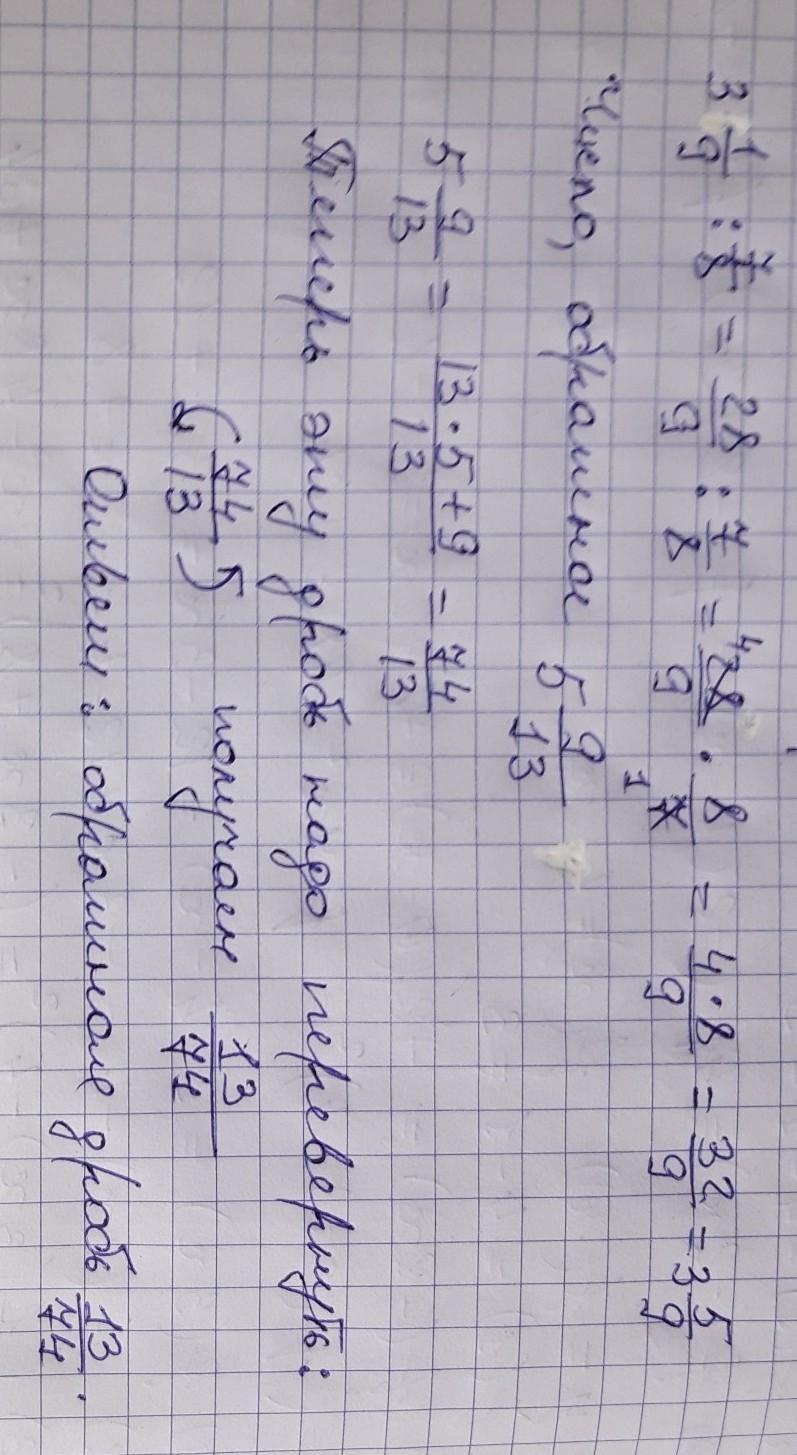 3 1/9 : 7/8 = 28/9 : 7/8 = 28/9 · 8/7 = 4·8/9 = 32/9 = 3 5/9
Число, обратное 5 9/13
5 9/13 = 13·5+9/13 = 74/13
Теперь эту дробь надо перевернуть:
(74/13) получаем 13/74
Ответ: обратное дробь 13/74.